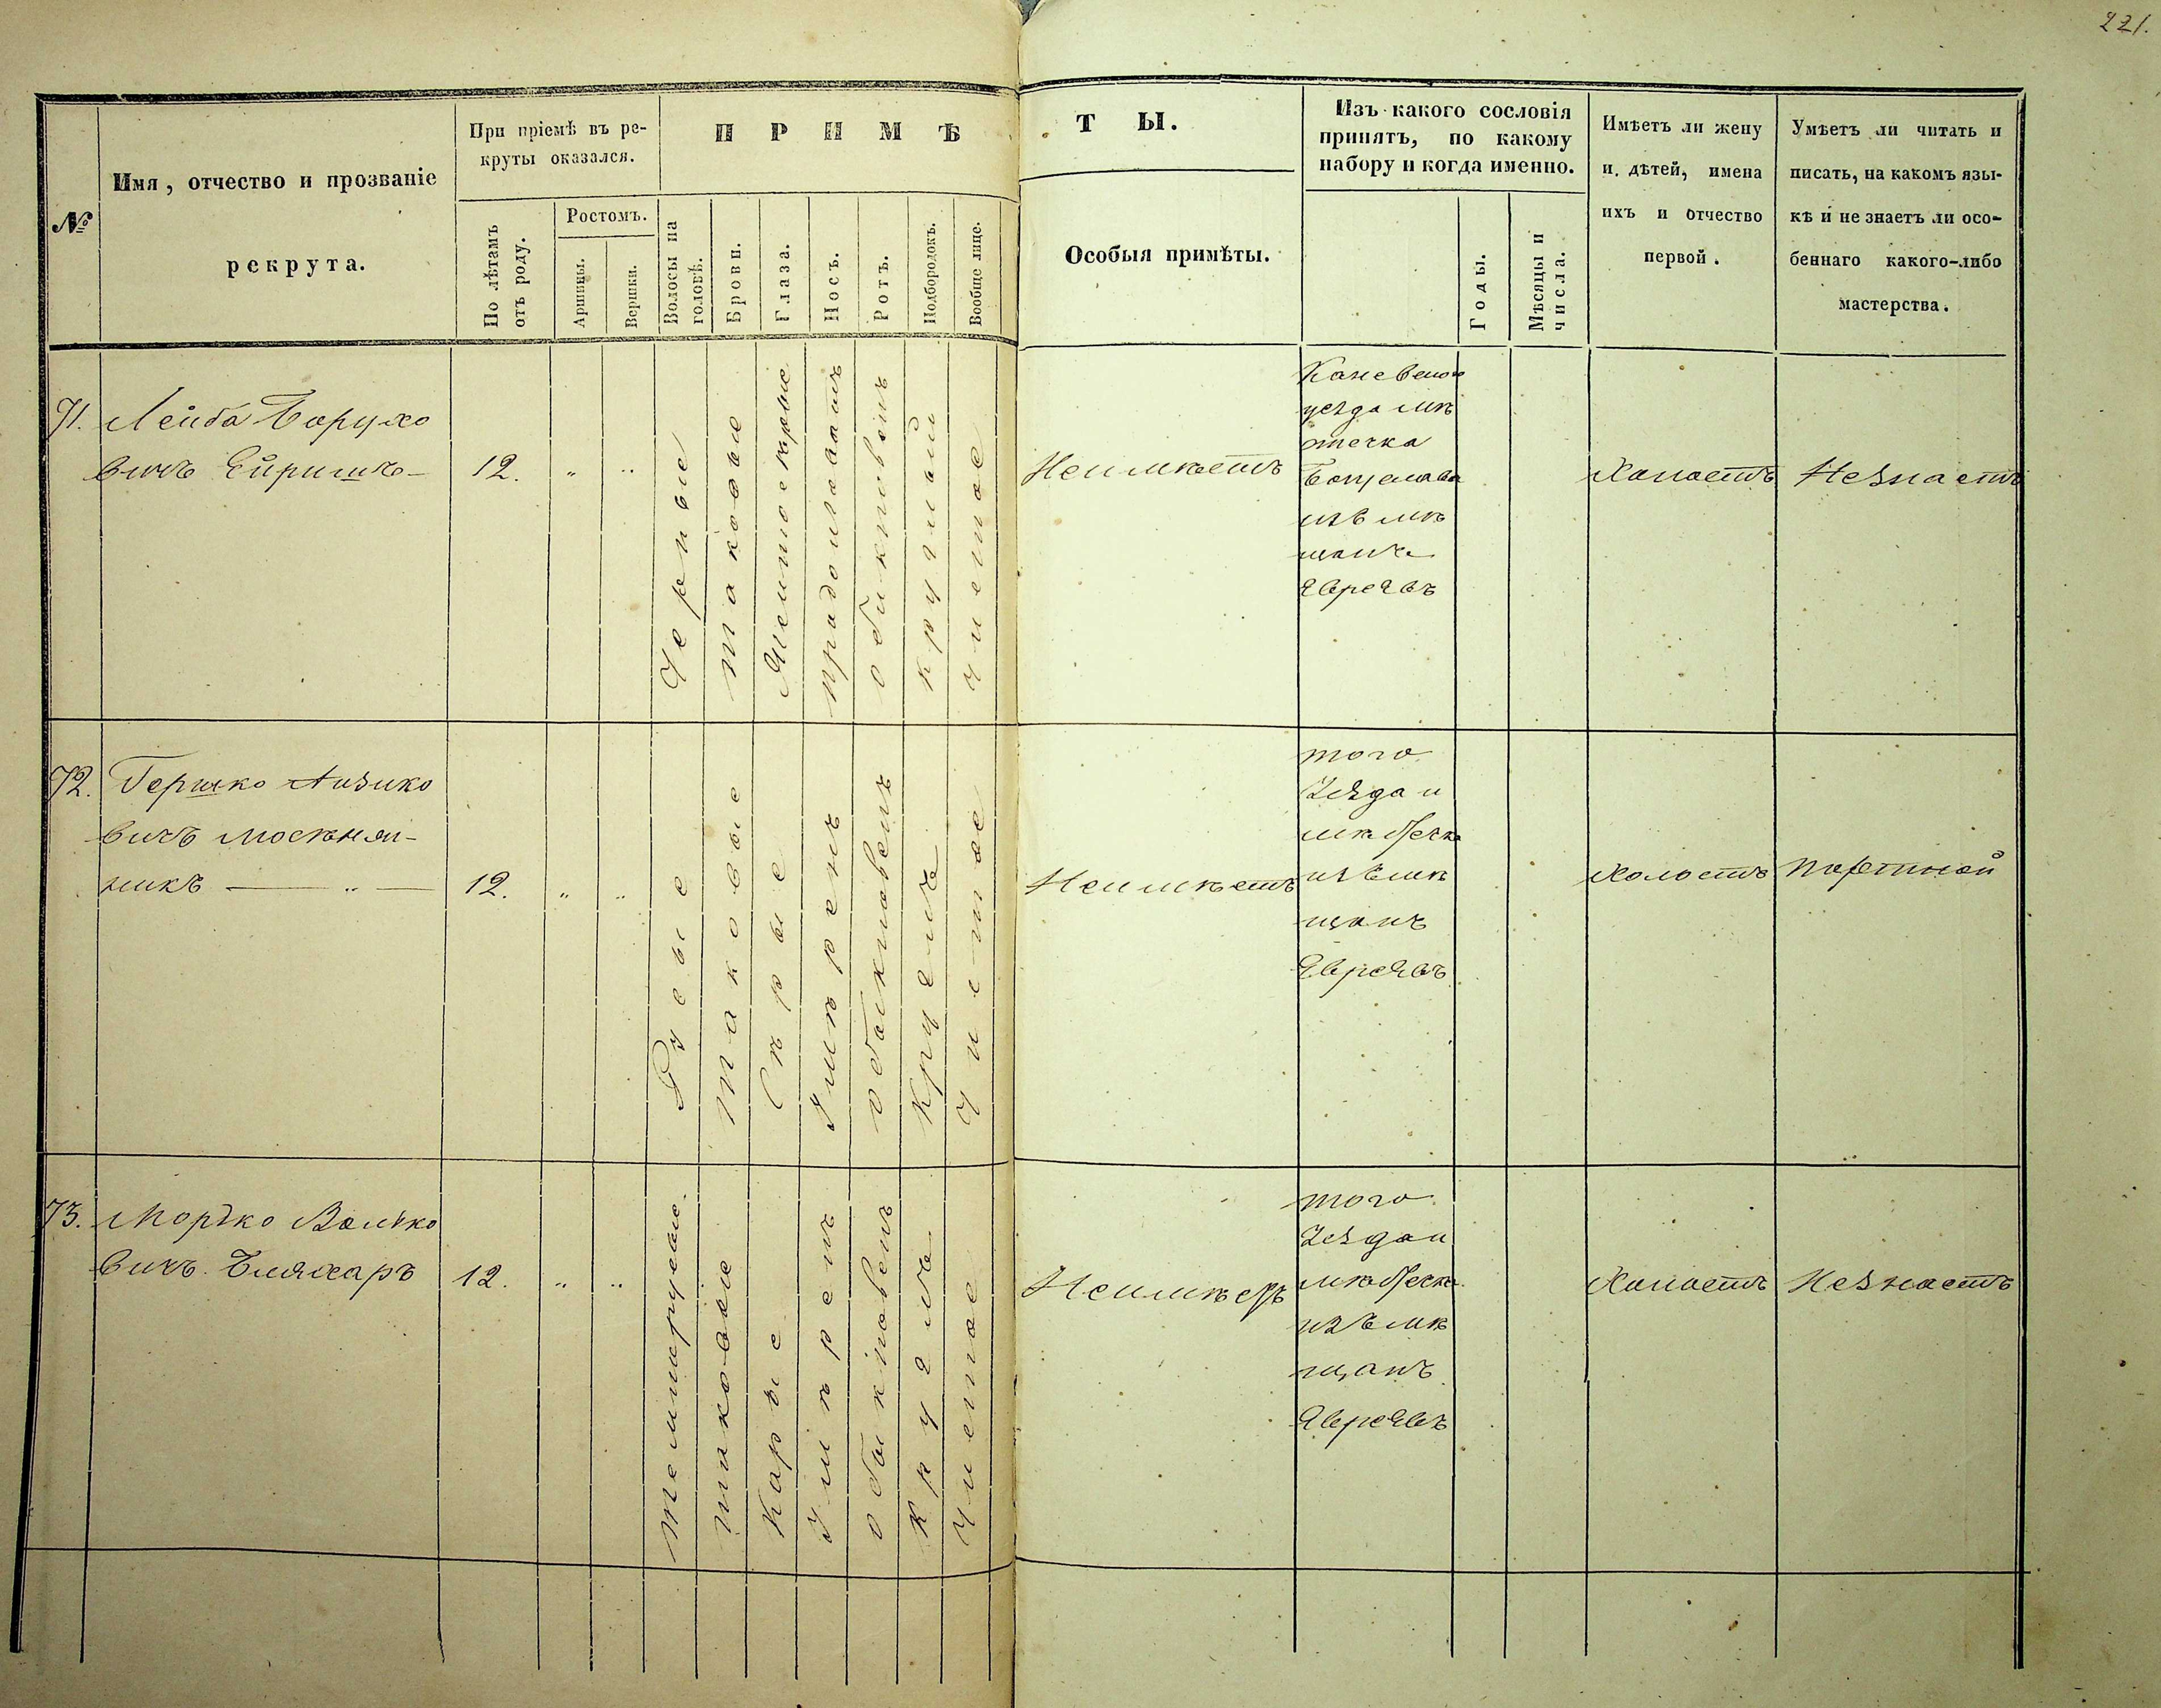 221.
№
Имя, отчество и прозваніе
рекрута.
При пріемѣ въ ре-
круты оказался.
По лѣтамъ
отъ роду.
Ростомъ.
Аршины.
Вершки.
ПРИМѢ
Волосы на
головѣ.
Брови.
Глаза.
Носъ.
Ротъ.
Подбородокъ.
Вообще лице.
ТЫ.
Особыя примѣты.
Изъ какого сословія
принятъ, по какому
набору и когда именно.
Годы.
Мѣсяцы и
числа.
Имѣетъ ли жену
и дѣтей, имена
ихъ и отчество
первой.
Умѣетъ ли читать и
писать, на какомъ язы-
кѣ и не знаетъ ли осо-
беннаго какого-либо
мастерства.
71.
Лейба Борухо
вичъ
12.
„
„
Черные
таковые
круглый
чистое
Неимѣетъ
Каневского
уезда мѣ
стечка
Богуслава
изъ мѣ
щанъ
Евреевъ
Холостъ
Незнаетъ
72.
Гершко Аизико
вичъ
никъ — „ —
12.
„
„
Русые
таковые
Сѣрые
Умѣренъ
обыкновенъ
Круглъ
Чистое
Неимѣетъ
того
Уезда и
мѣстечка
изъ мѣ
щанъ
Евреевъ
Холостъ
Портной
73.
Моръко Волько
вичъ Бляхаръ
12.
„
„
темнорусые.
таковые
Карые
Умѣренъ
обыкновенъ
Круглъ
Чистое
Неимѣетъ
того
Уезда и
мѣстечка
изъ мѣ
щанъ
Евреевъ
Холостъ
Незнаетъ